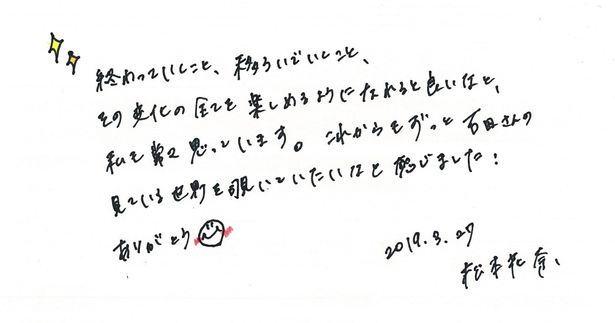 終わっていくこと、移ろいでいくこと、
その変化の全てを楽しめるようになれると良いなと、
私も常々思っています。これからもずっと石田さんの
見ている世界を覗いていたいなと感じました！
ありがとう
2019.3.27
松本花奈、